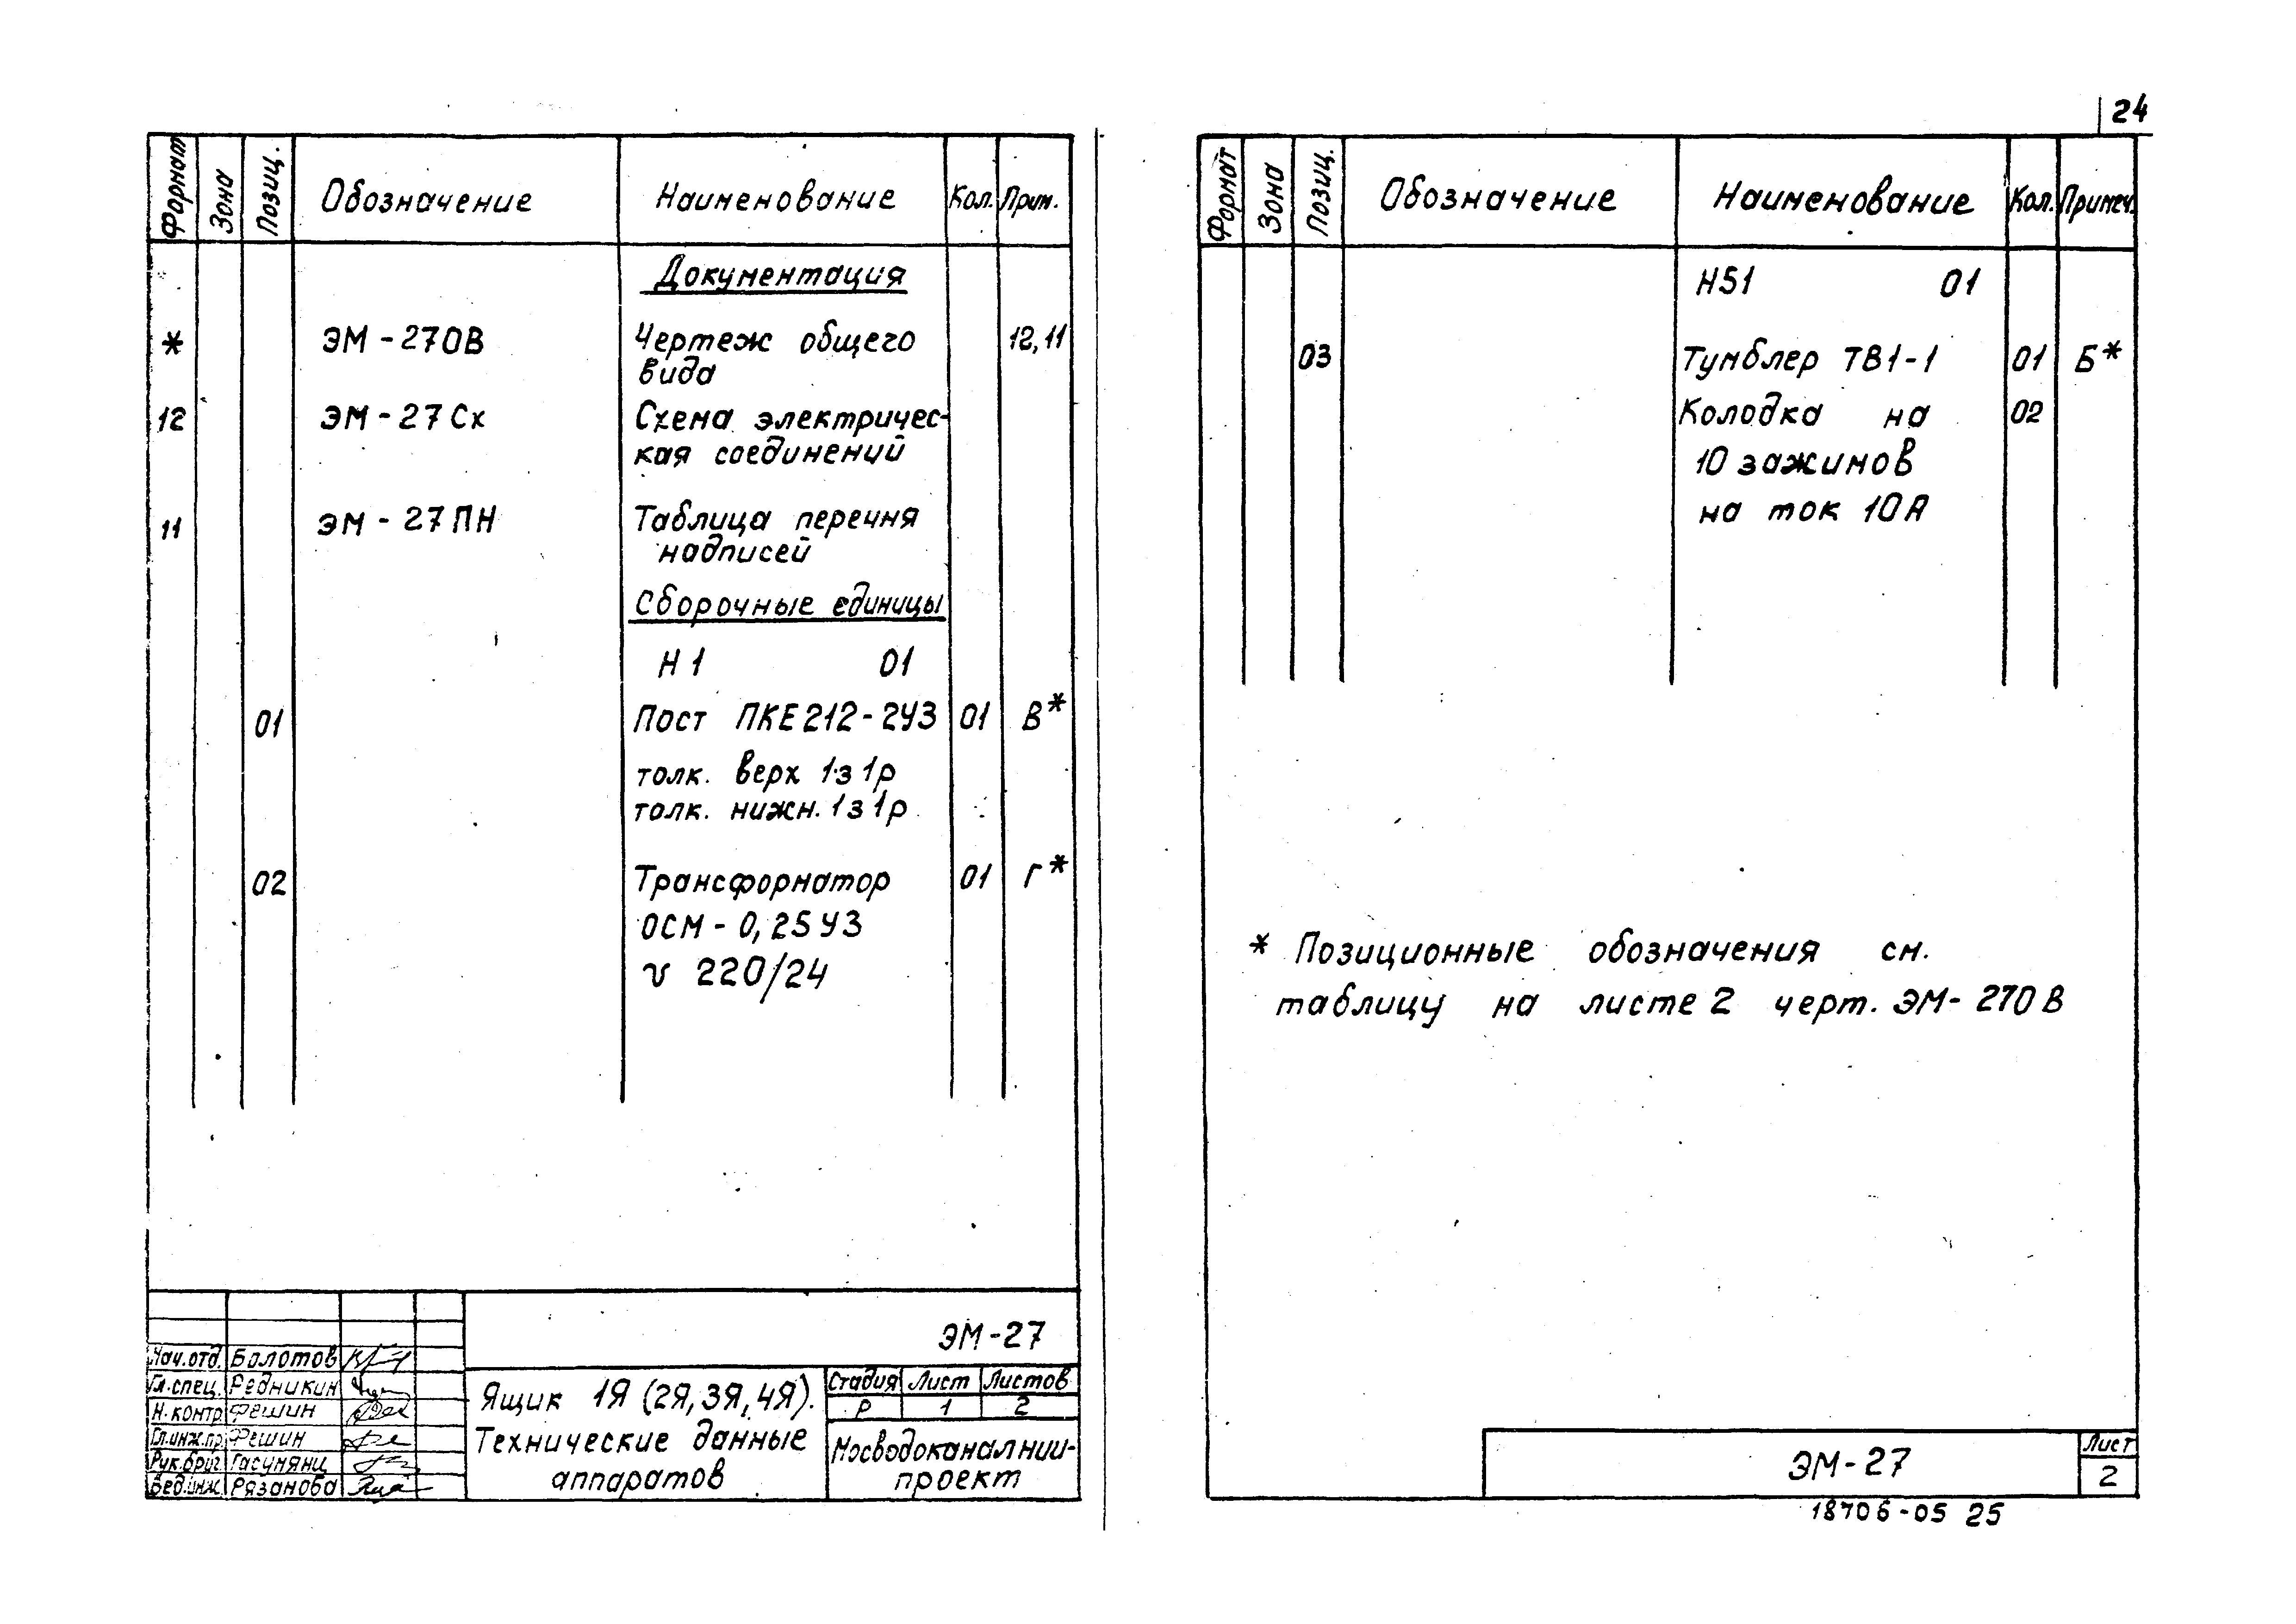 24
Формат Зона Позиц. Обозначение Наименование Кол. Прим.
Документация
* ЭМ-27ОВ Чертеж общего 12,11
вида
12 ЭМ-27Сх Схема электричес-
кая соединений
11 ЭМ-27ПН Таблица перечня
надписей
Сборочные единицы
Н1 01
01 Пост ПКЕ212-2У3 01 В*
толк. верх 1з1р
толк. нижн. 1з1р
02 Трансформатор 01 Г*
ОСМ-0,25У3
v 220/24
ЭМ-27
Нач.отд. Болотов
Гл.спец. Редникин
Н.контр. Фешин
Гл.инж.пр. Фешин
Рук.бриг. Гасумянц
Вед.инж. Рязанова
Ящик 1Я (2Я,3Я,4Я).
Технические данные
аппаратов
Стадия Лист Листов
Р 1 2
Мосводоканалнии-
проект
Формат Зона Позиц. Обозначение Наименование Кол. Примеч.
Н51 01
03 Тумблер ТВ1-1 01 Б*
Колодка на 02
10 зажимов
на ток 10А
* Позиционные обозначения см.
таблицу на листе 2 черт. ЭМ-27ОВ
ЭМ-27
Лист
2
18706-05 25